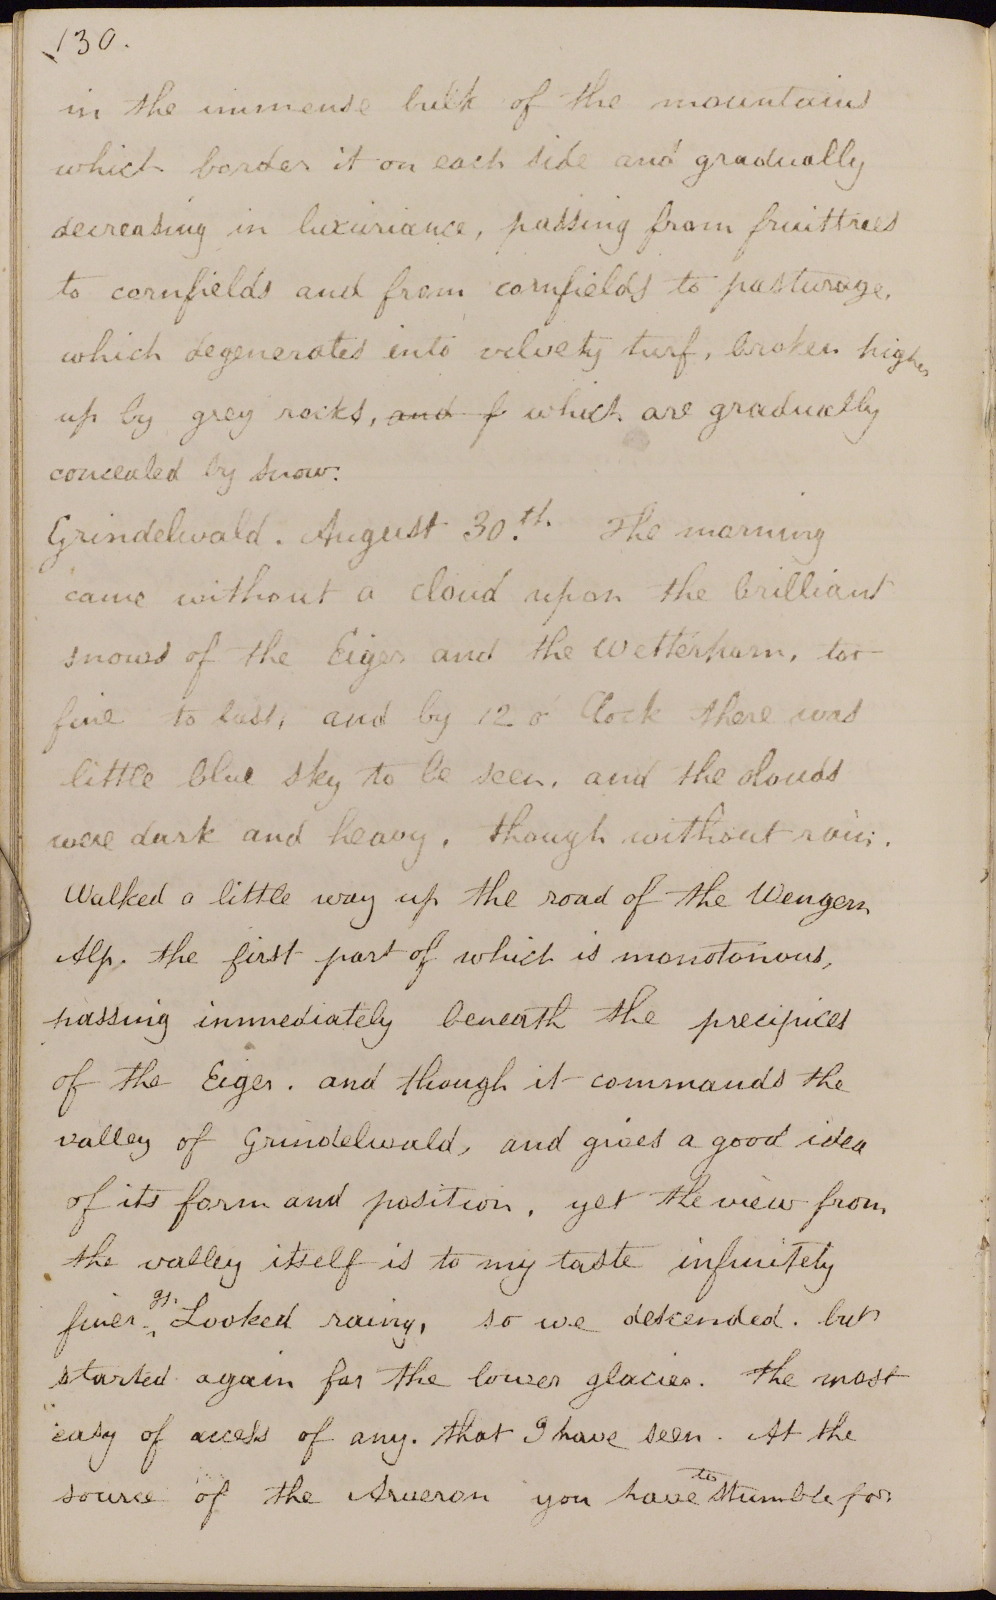 130.
in the immense bulk of the mountains
which border it on each side and gradually
decreasing in luxuriance, passing from fruittrees
to cornfields and from cornfields to pasturage,
which degenerates into velvety turf, broken higher
up by grey rocks, and f which are gradually
concealed by snow.
Grindelwald. August 30.th The morning
came without a cloud upon the brilliant
snows of the Eiger and the Wetterhorn, too
fine to last, and by 12 o Clock there was
little blue sky to be seen, and the clouds
were dark and heavy, though without rain.
Walked a little way up the road of the Wengern
Alp. the first part of which is monotonous,
passing immediately beneath the precipices
of the Eiger. and though it commands the
valley of Grindelwald, and gives a good idea
of its form and position, yet the view from
the valley itself is to my taste infinitely
finer. It Looked rainy, so we descended. but
started again for the lower glacier. The most
easy of access of any. that I have seen. At the
source of the Arveron you have to stumble for